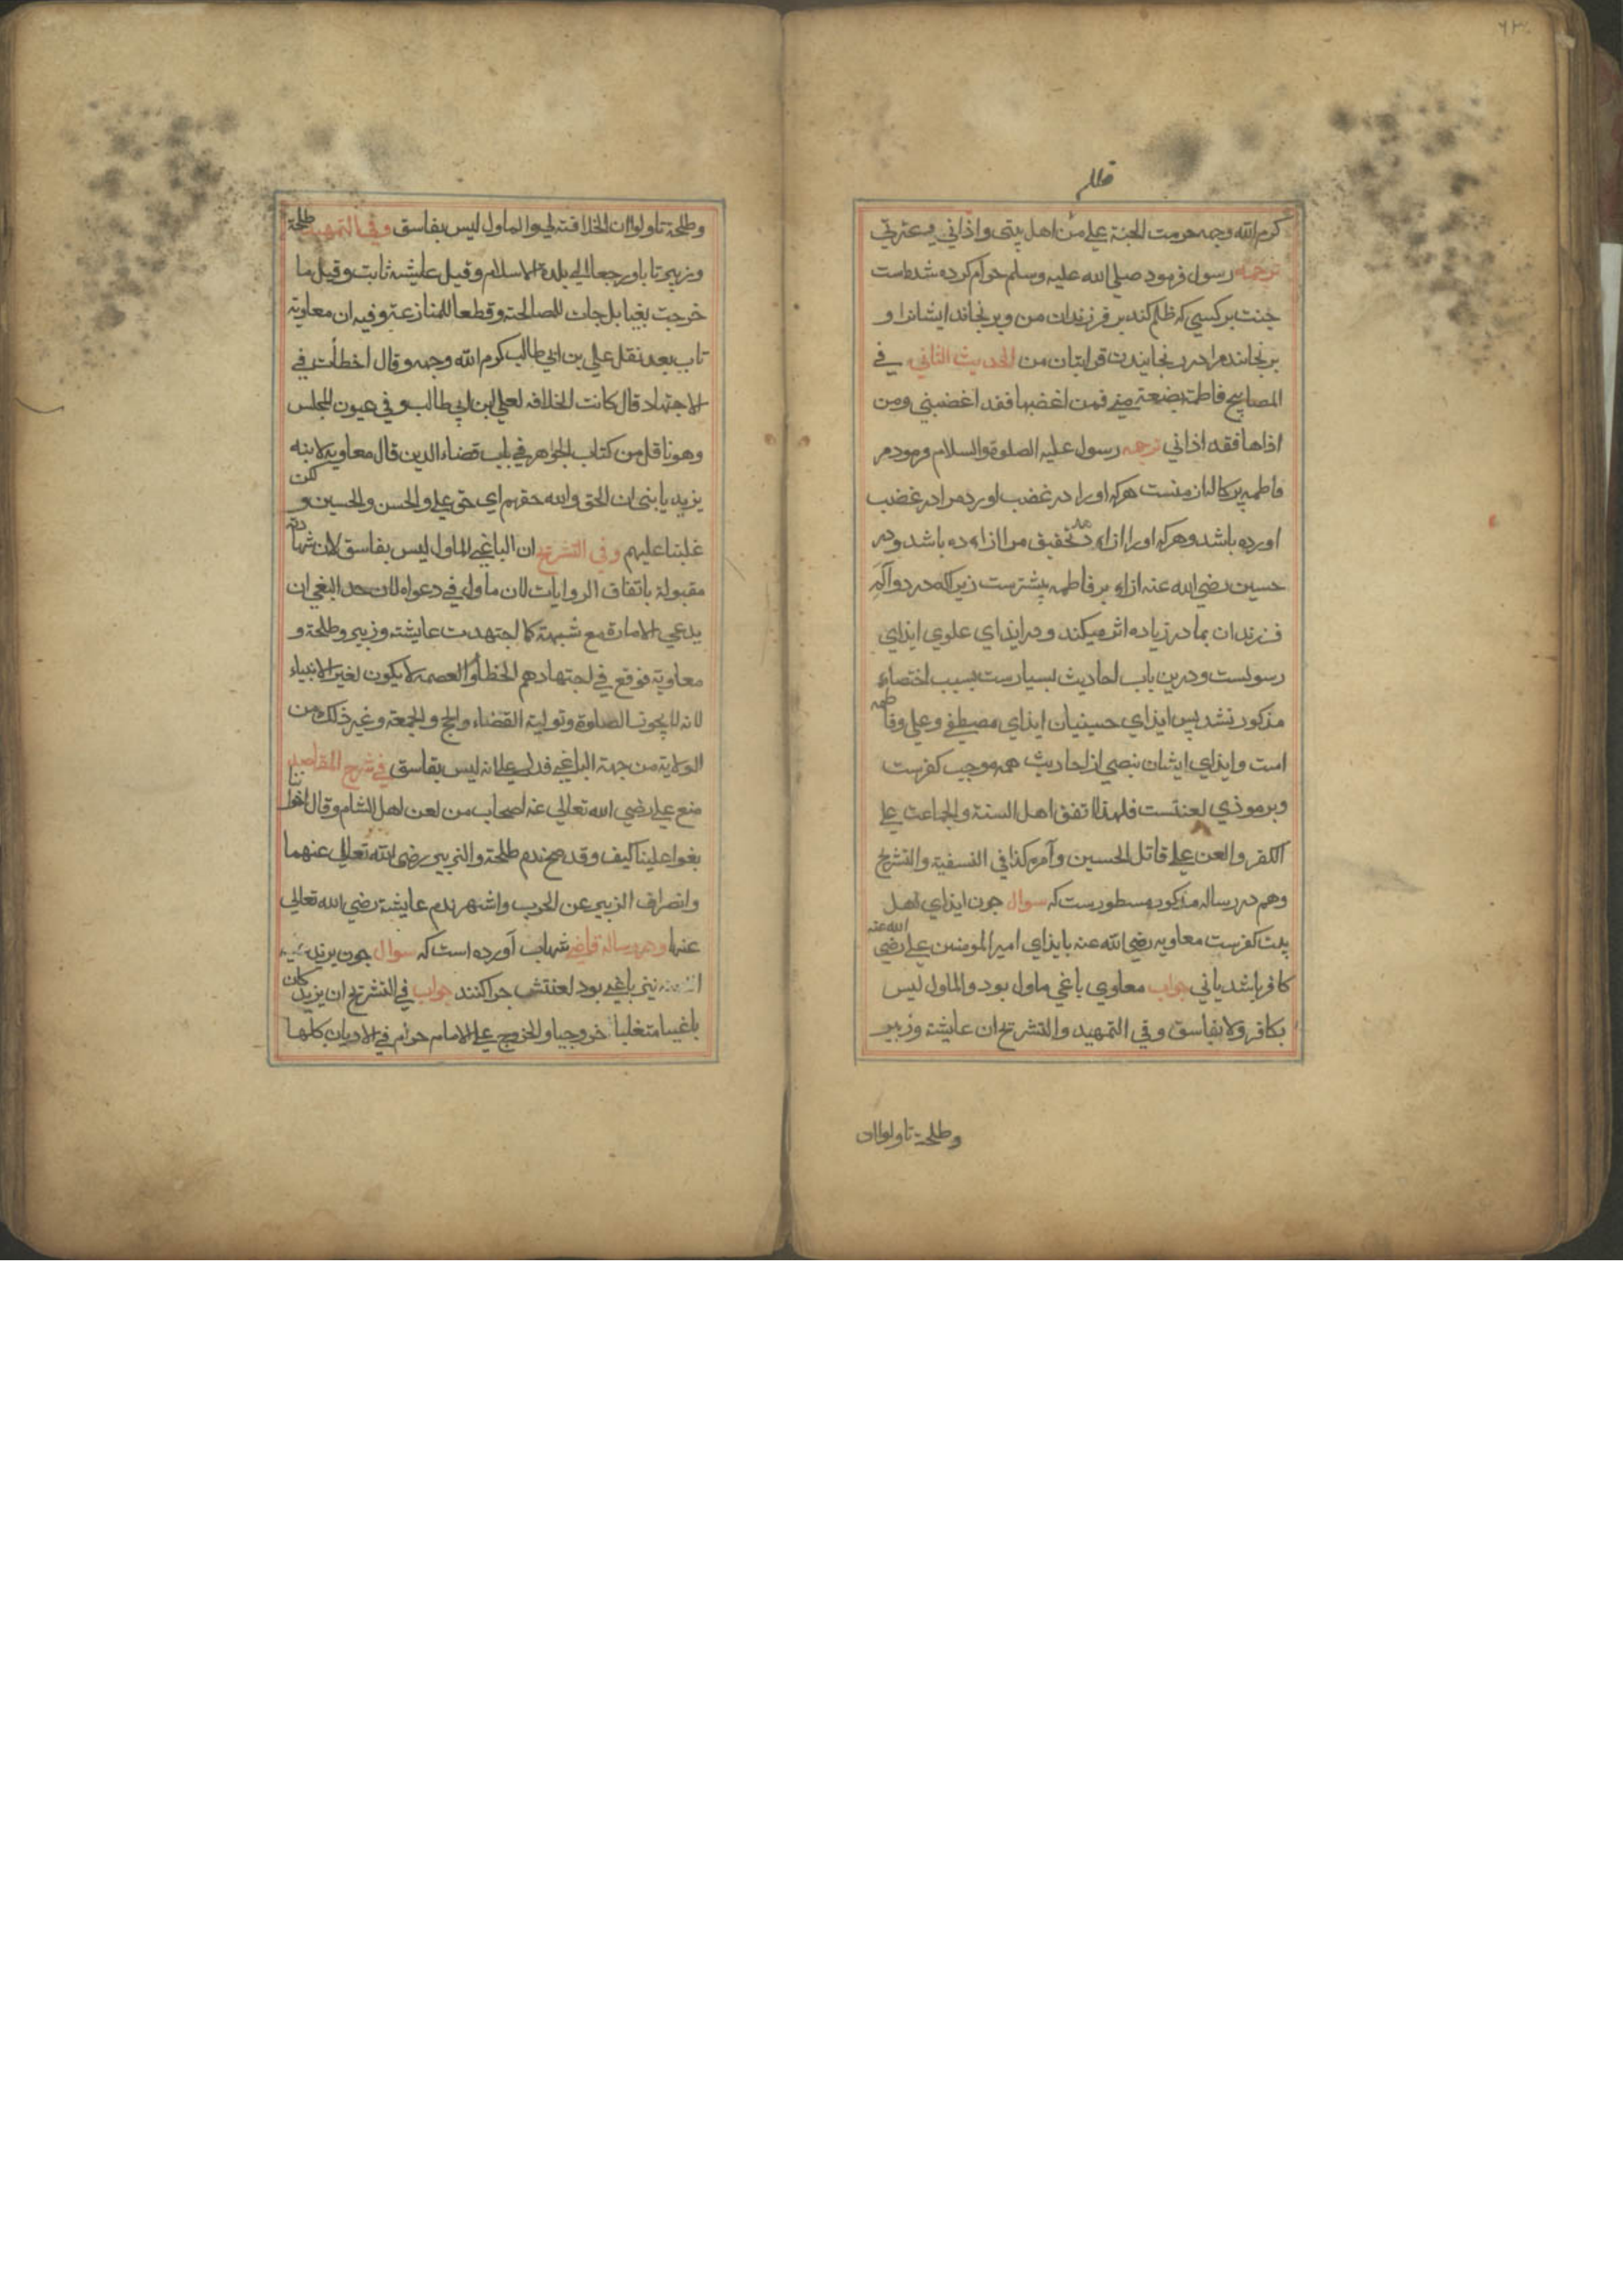 ٦٣
ظلم
كرم الله وجهه حرمت الجنة علي من اهل بيتي واذاني في عترتي
ترجمه رسول فرمود صلي الله عليه وسلم حرام كرده شده است
جنت بر كسي كه ظلم كند بر فرزندان من و برنجاند ايشانرا و
برنجاند مرا در رنجانيدن قرابتان من الحديث الثاني في
المصابيح فاطمة بضعة مني فمن اغضبها فقد اغضبني ومن
اذاها فقد اذاني ترجمه رسول عليه الصلوة والسلام فرمود مر
فاطمه پركاله از منست هركه اورا در غضب اورد مرا در غضب
اورده باشد وهركه اورا ازار دهد تحقيق مرا ازار ده باشد ودر
حسين رضي الله عنه ازار بر فاطمه بيشترست زيراكه درد و آلم
فرزندان بمادر زياده اثر ميكند ودر ايذاي علوي ايذاي
رسولست ودرين باب احاديث بسيارست بسبب اختصار
مذكور نشد پس ايذاي حسينيان ايذاي مصطفي وعلي وفاطمه
است وايذاي ايشان بنصي از احاديث همه موجب كفرست
وبر موذي لعنتست فلهذا اتفق اهل السنة والجماعت علي
الكفر والعن علي قاتل الحسين وآمره كذا في النسفية والتشريح
وهم در رساله مذكوره مسطورست كه سوال چون ايذاي اهل
بيت كفرست معاويه رضي الله عنه بايذاي امير المومنين علي رضي الله عنه
كافر باشد ياني جواب معاوي باغي ماول بود والماول ليس
بكافر ولا بفاسق وفي التمهيد والتشريح ان عايشة وزبير
وطلحة تاولوا ان
وطلحة تاولوا ان الخلافة لي والماول ليس بفاسق وفي التمهيد طلحة
وزبير تابا ورجعا الي بلدة الاسلام وقيل عايشة ثابت وقيل ما
خرجت بغيا بل جات للمصالحة وقطعا للمنازعة وفيه ان معاوية
تاب بعد نقل علي بن ابي طالب كرم الله وجهه وقال اخطأت في
الاجتهاد قال كانت الخلافه لعلي ابن ابي طالب وفي عيون المجلس
وهو ناقل من كتاب الجواهر في باب قضاء الدين قال معاوية لابنه
يزيد يا بني ان الحق والله حقهم اي حق علي والحسن والحسين ولكن
غلبنا عليهم وفي التشريح ان الباغي الماول ليس بفاسق لان شهادته
مقبولة باتفاق الروايات لان ماول في دعواه لان حد البغي ان
يدعي الامارة مع شبهة كما اجتهدت عايشة وزبير وطلحة و
معاوية فوقع في اجتهادهم الخطأ والعصمة لا يكون لغير الانبياء
لانه لا يجوز الصلوة وتولية القضاء والحج والجمعة وغير ذلك من
الولاية من جهة الباغي فدل علي انه ليس بفاسق في شرح المقاصد
منع علي رضي الله تعالي عنه اصحاب من لعن اهل الشام وقال اخواننا
بغوا علينا كيف وقد صح ندم طلحة والزبير رضي الله تعالي عنهما
وانصراف الزبير عن الحرب واشهر ندم عايشة رضي الله تعالي
عنها ودر رسالة قاضي شهاب آورده است كه سوال چون يزيد
نيز باغي بود لعنتش چرا كنند جواب في التشريح ان يزيد كان
باغيا متغلبا خروجيا والخروج علي الامام حرام في الاديان كلها